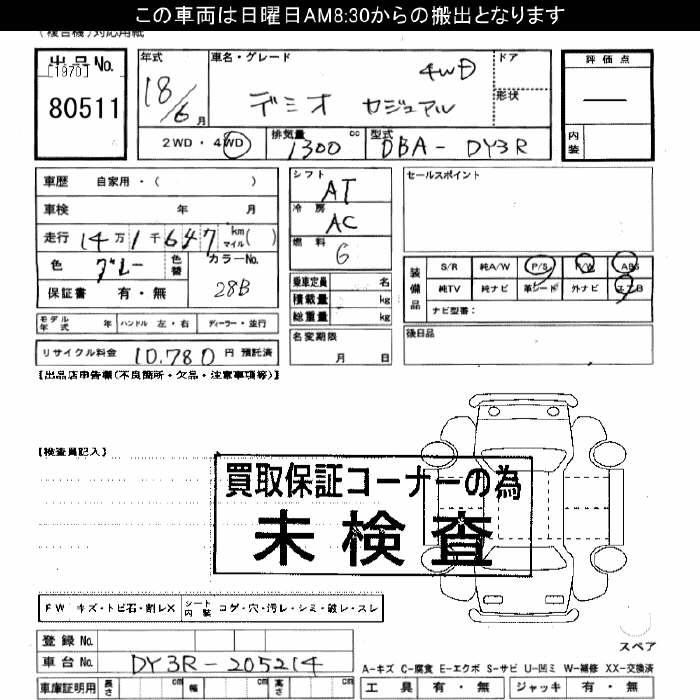 この車両は日曜日AM8:30からの搬出となります
(複合機)対応用紙
出品No.
[1970]
80511
年式
18/6月
車名・グレード
4WD
デミオ カジュアル
ドア
形状
評価点
—
内装
2WD・4WD
排気量 1300 cc
型式 DBA-DY3R
車歴 自家用・( )
車検 年 月
走行 14万1千647 km マイル( )
色 グレー 色替 カラーNo. 28B
保証書 有・無
シフト AT
冷房 AC
燃料 G
乗車定員 名
積載量 kg
総重量 kg
セールスポイント
装備品
S/R 純A/W P/S P/W ABS
純TV 純ナビ 革シート 外ナビ エアB
ナビ型番:
モデル年式 年 ハンドル 左・右 ディーラー・並行
名変期限
月 日
後日品
リサイクル料金 10,780 円 預託済
【出品店申告欄(不良箇所・欠品・注意事項等)】
【検査員記入】
買取保証コーナーの為
未検査
FW キズ・トビ石・割レX シート内装 コゲ・穴・汚レ・シミ・破レ・スレ
登録No.
スペア
車台No. DY3R-205214
A-キズ C-腐食 E-エクボ S-サビ U-凹ミ W-補修 XX-交換済
車庫証明用 長さ cm 幅 cm 高さ cm
工具 有・無 ジャッキ 有・無